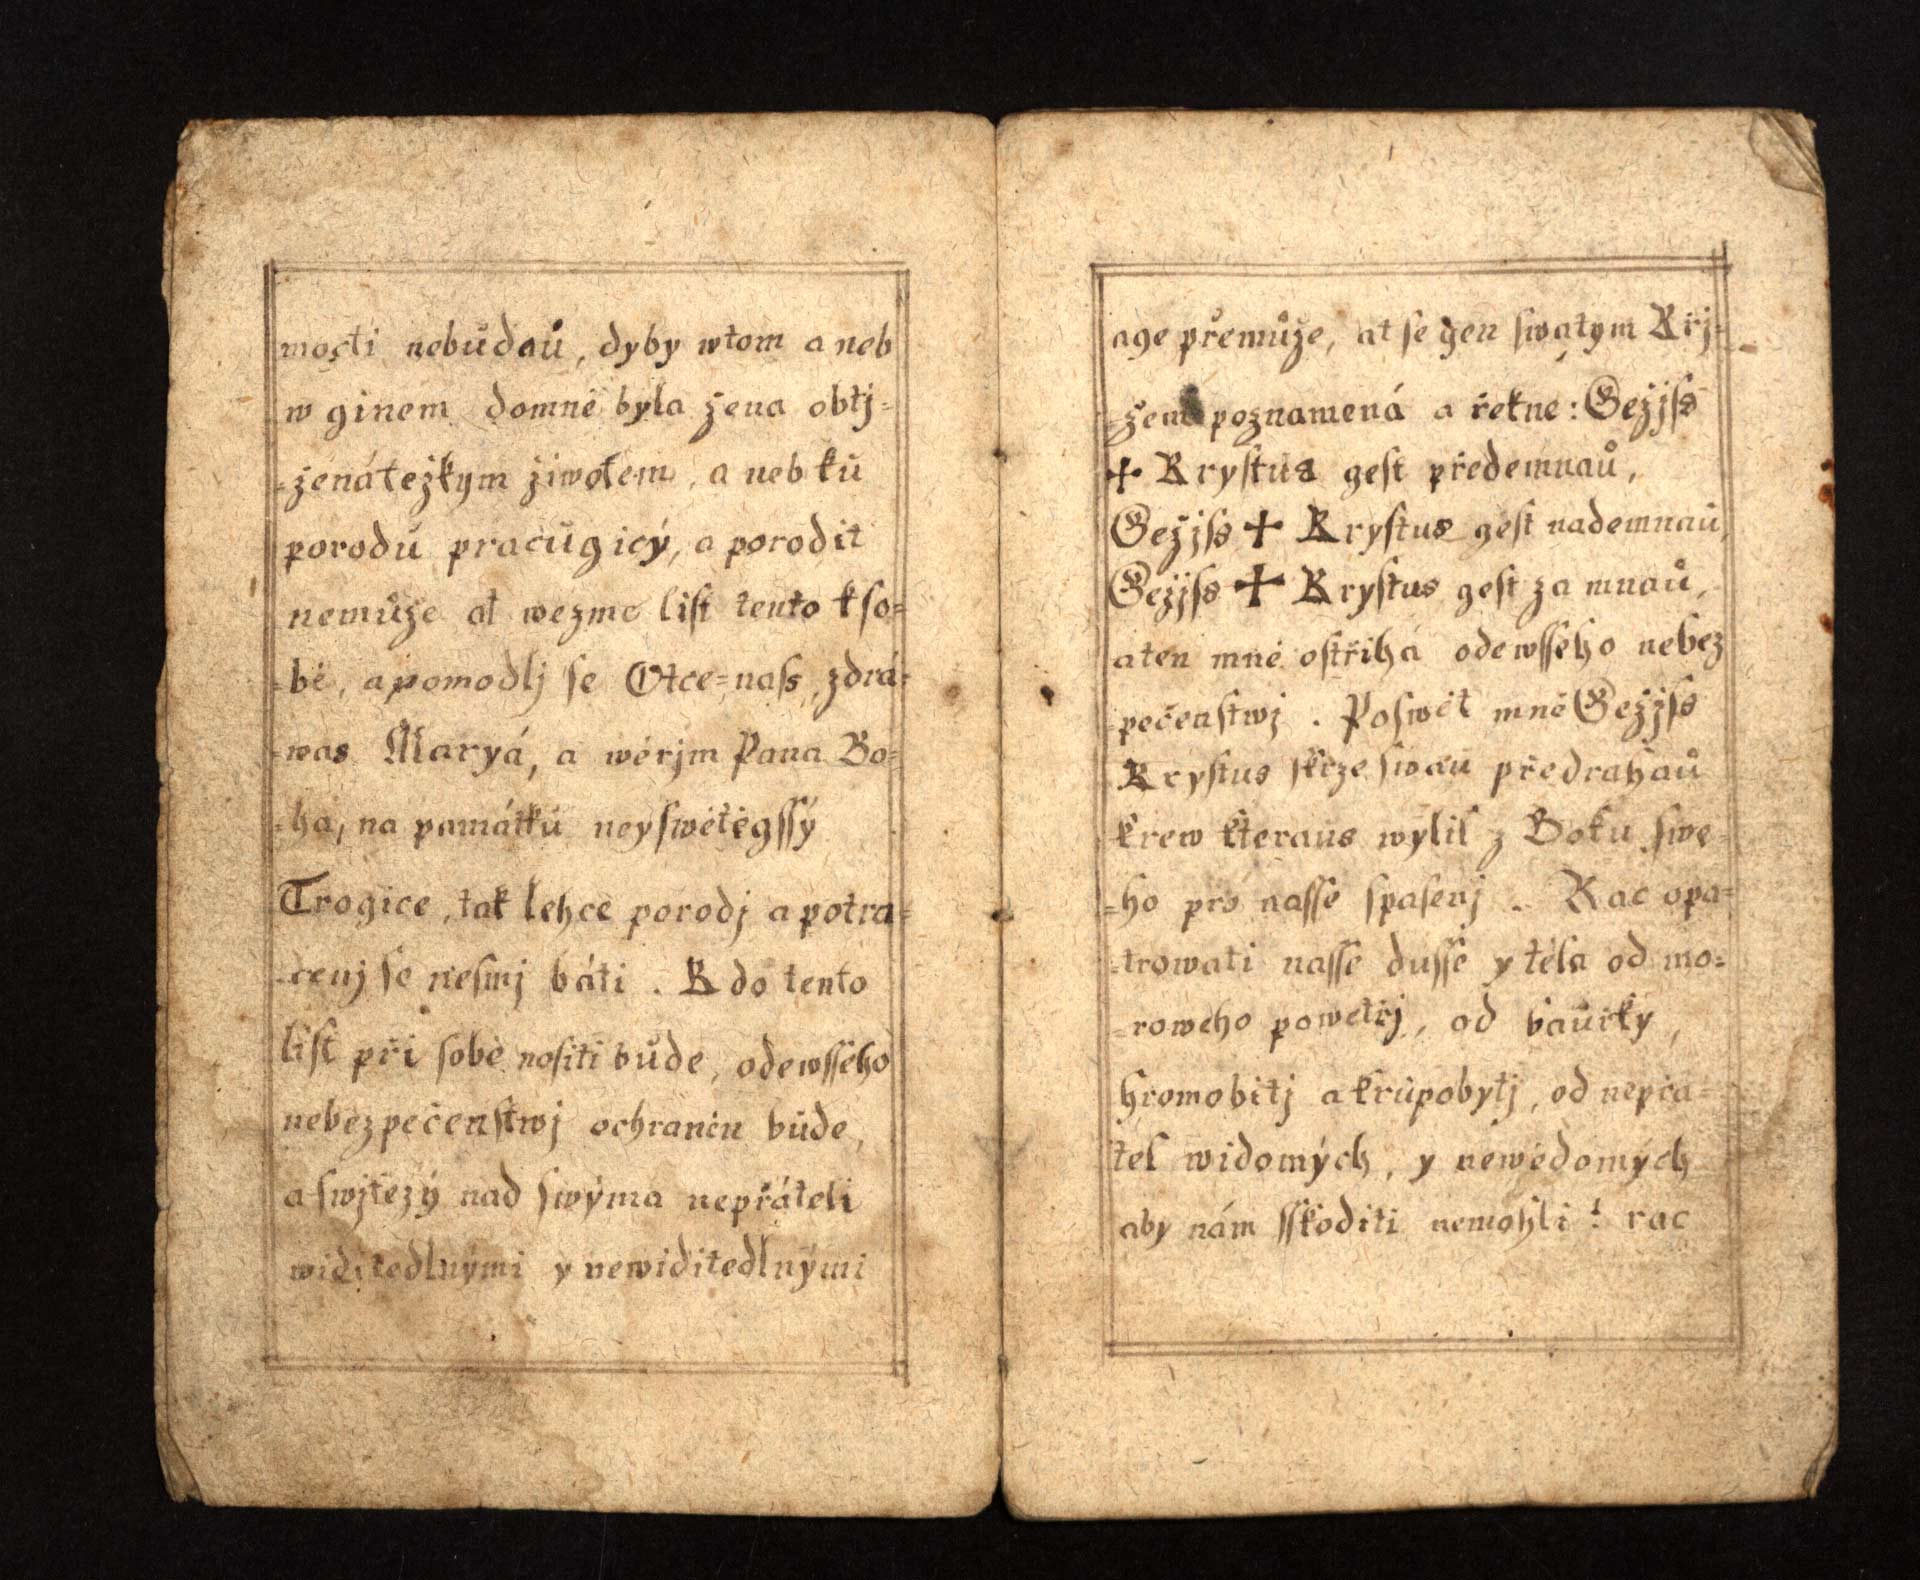 mosti nebůdaů, dyby wtom a neb
w ginem domně byla žena obtj=
=ženátežkym žiwotem, a neb ků
porodů pracůgicý, a porodit
nemůže at wezme list tento k so=
=bě, a pomodlj se Otce=nass, zdrá=
=was Maryá, a wěrjm Pana Bo=
=ha, na památků neyswětěgssý
Trogice, tak lehce porodj a potra=
=cenj se nesmj báti. Kdo tento
list při sobě nositi bůde, odewsseho
nebezpečenstwj ochraněn bůde,
a swjtezý nad swýma nepřáteli
widitedlnými y newiditedlnými
age přemůže, at se gen swatym Křj=
=žem poznamená a řekne: Gežjss
✝ Krystus gest předemnaů,
Gežjss ✝ Krystus gest nademnaů,
Gežjss ✝ Krystus gest za mnaů,
aten mně ostřihá odewsseho nebez
pečenstwj. Poswět mně Gežjss
Krystus skrze swau předrahaů
krew kteraus wylil z Boku swe=
=ho pro nasse spasenj. Rac opa=
=trowati nasse dusse y těla od mo=
=roweho powetřj, od baůřky,
hromobitj a krůpobytj, od nepřa=
tel widomých, y newědomých
aby nám sskoditi nemohli! rac